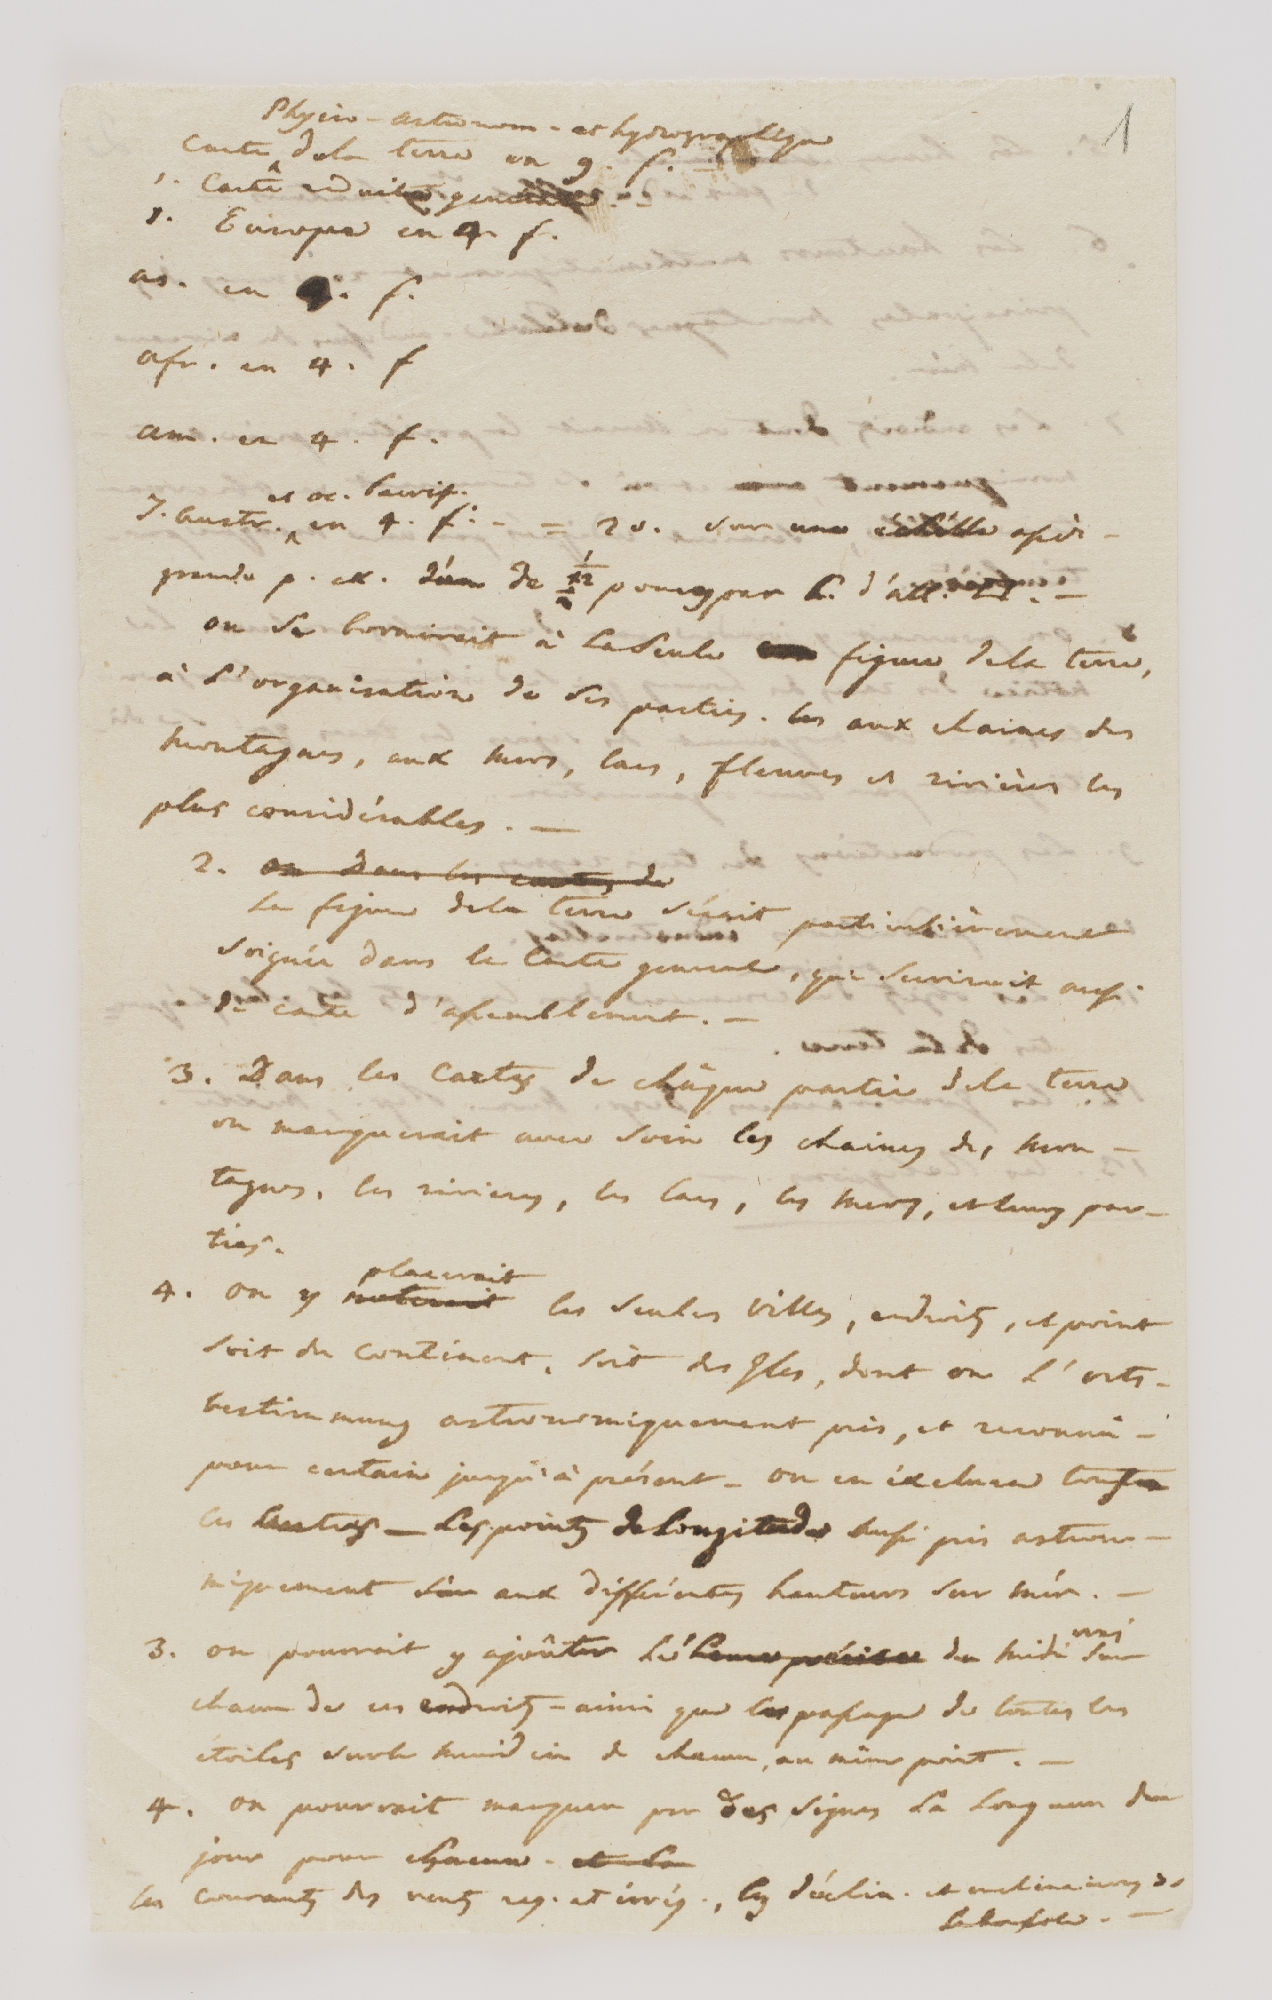 1
Physico-astronom- et hydrographique
Carte de la terre en 9. f.
1. Carte réduite generale
1. Europe en 4 f.
as. en 4. f.
afr. en 4. f
am. en 4. f.
et oc. pacif.
J. Austr. en 4. f. - = 20. sur une échelle assés
grande p. ex. d'un de 1/12 pouce par L. d'all.
on se borneroit à la seule figure dela terre,
à l'organisation de ses parties. les aux chaines des
montagnes, aux mers, lacs, fleuves et rivières les
plus considérables. —
2. on Dans les cartes de
La figure dela terre séroit particulièrement
soignée dans la Carte general, qui serviroit aussi
de carte d'assemblement. —
3. Dans les Cartes de châque partie dela terre
on marquerait avec soin les chaines des mon-
tagnes, les rivieres, les lacs, les mers, et leurs par-
ties.
placerait
4. on y noterait les seules villes, endroits, et point
soit du continent, soit des Isles, dont on l'orts-
bestimmung astronomiquement pris, et reconnû -
pour certain jusqu'à présent - on en éxcluera tous
les autres — Les points de Longitude aussi pris astrono-
miquement aux différentes hauteurs sur mér. —
vrai
3. on pourroit y ajoûter l'heure précise du midi sur
chacun de ces endroits - ainsi que les passage de toutes les
étoiles sur le meridien de chacun, au même point. —
4. on pourroit marquer par des signes La Longueur du
jour pour chacune. et la
les Courants des vents reg. et irrég., les déclin. et inclinaisons de
la boussole. —